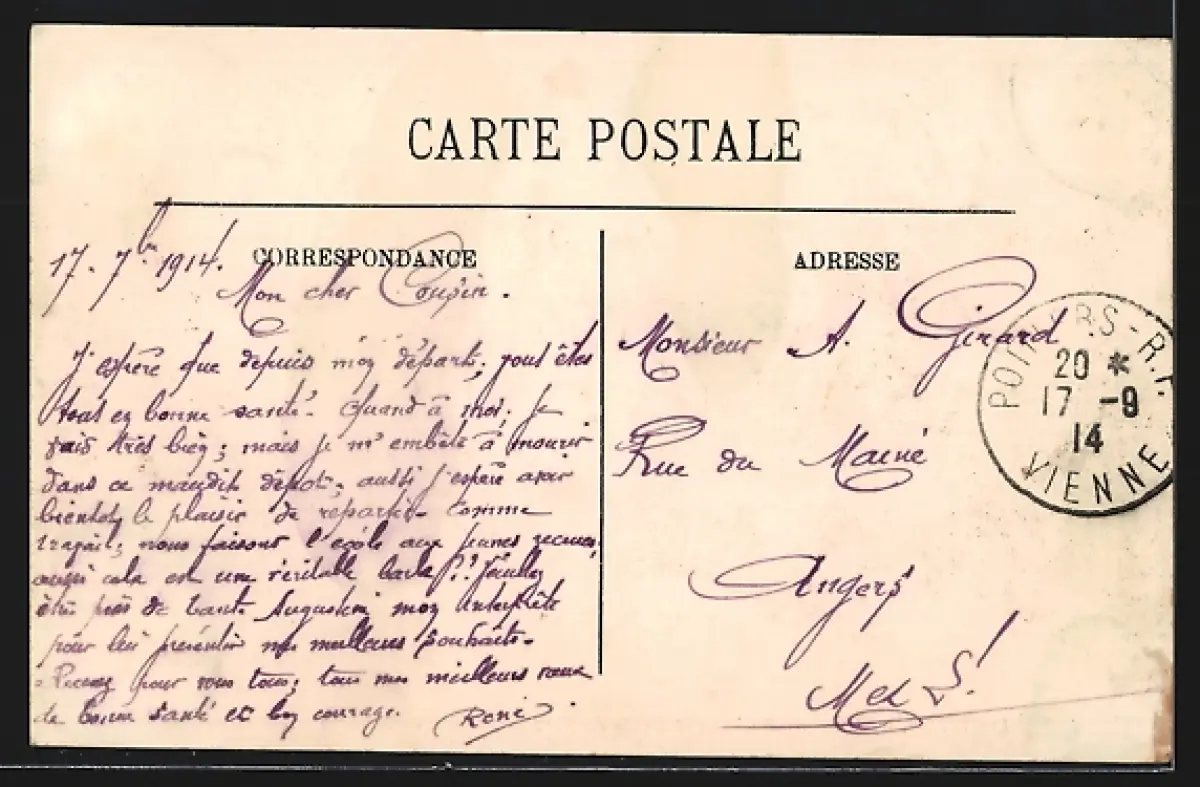 CARTE POSTALE
CORRESPONDANCE
17. 7bre 1914.
Mon cher Cousin.
J'espère que depuis mon départ, vous êtes
tous en bonne santé. Quand à moi, je
vais très bien; mais je m'embête à mourir
dans ce maudit dépôt, aussi j'espère avoir
bientôt le plaisir de repartir. Comme
travail, nous faisons l'école aux jeunes recrues
aussi cela est une véritable !! Veuillez
être près de tante Augustine mon interprète
pour lui présenter mes meilleurs souhaits.
Recevez pour vous tous, tous mes meilleurs vœux
de bonne santé et bon courage. René.
ADRESSE
Monsieur A. Girard
Rue du Maine
Angers
M et L!
POITIERS - R.P.
20 *
17 -9
14
VIENNE